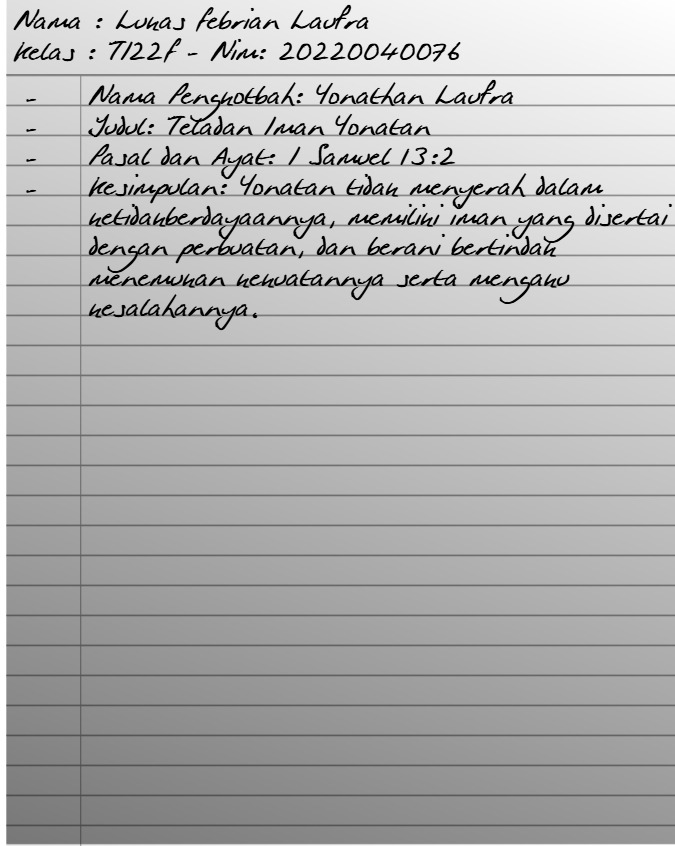 Nama : Lukas Febrian Laufra
Kelas : TI22F - Nim: 20220040076
- Nama Pengkotbah: Yonathan Laufra
- Judul: Teladan Iman Yonatan
- Pasal dan Ayat: 1 Samuel 13:2
- Kesimpulan: Yonatan tidak menyerah dalam
ketidakberdayaannya, memiliki iman yang disertai
dengan perbuatan, dan berani bertindak
menemukan kekuatannya serta mengaku
kesalahannya.